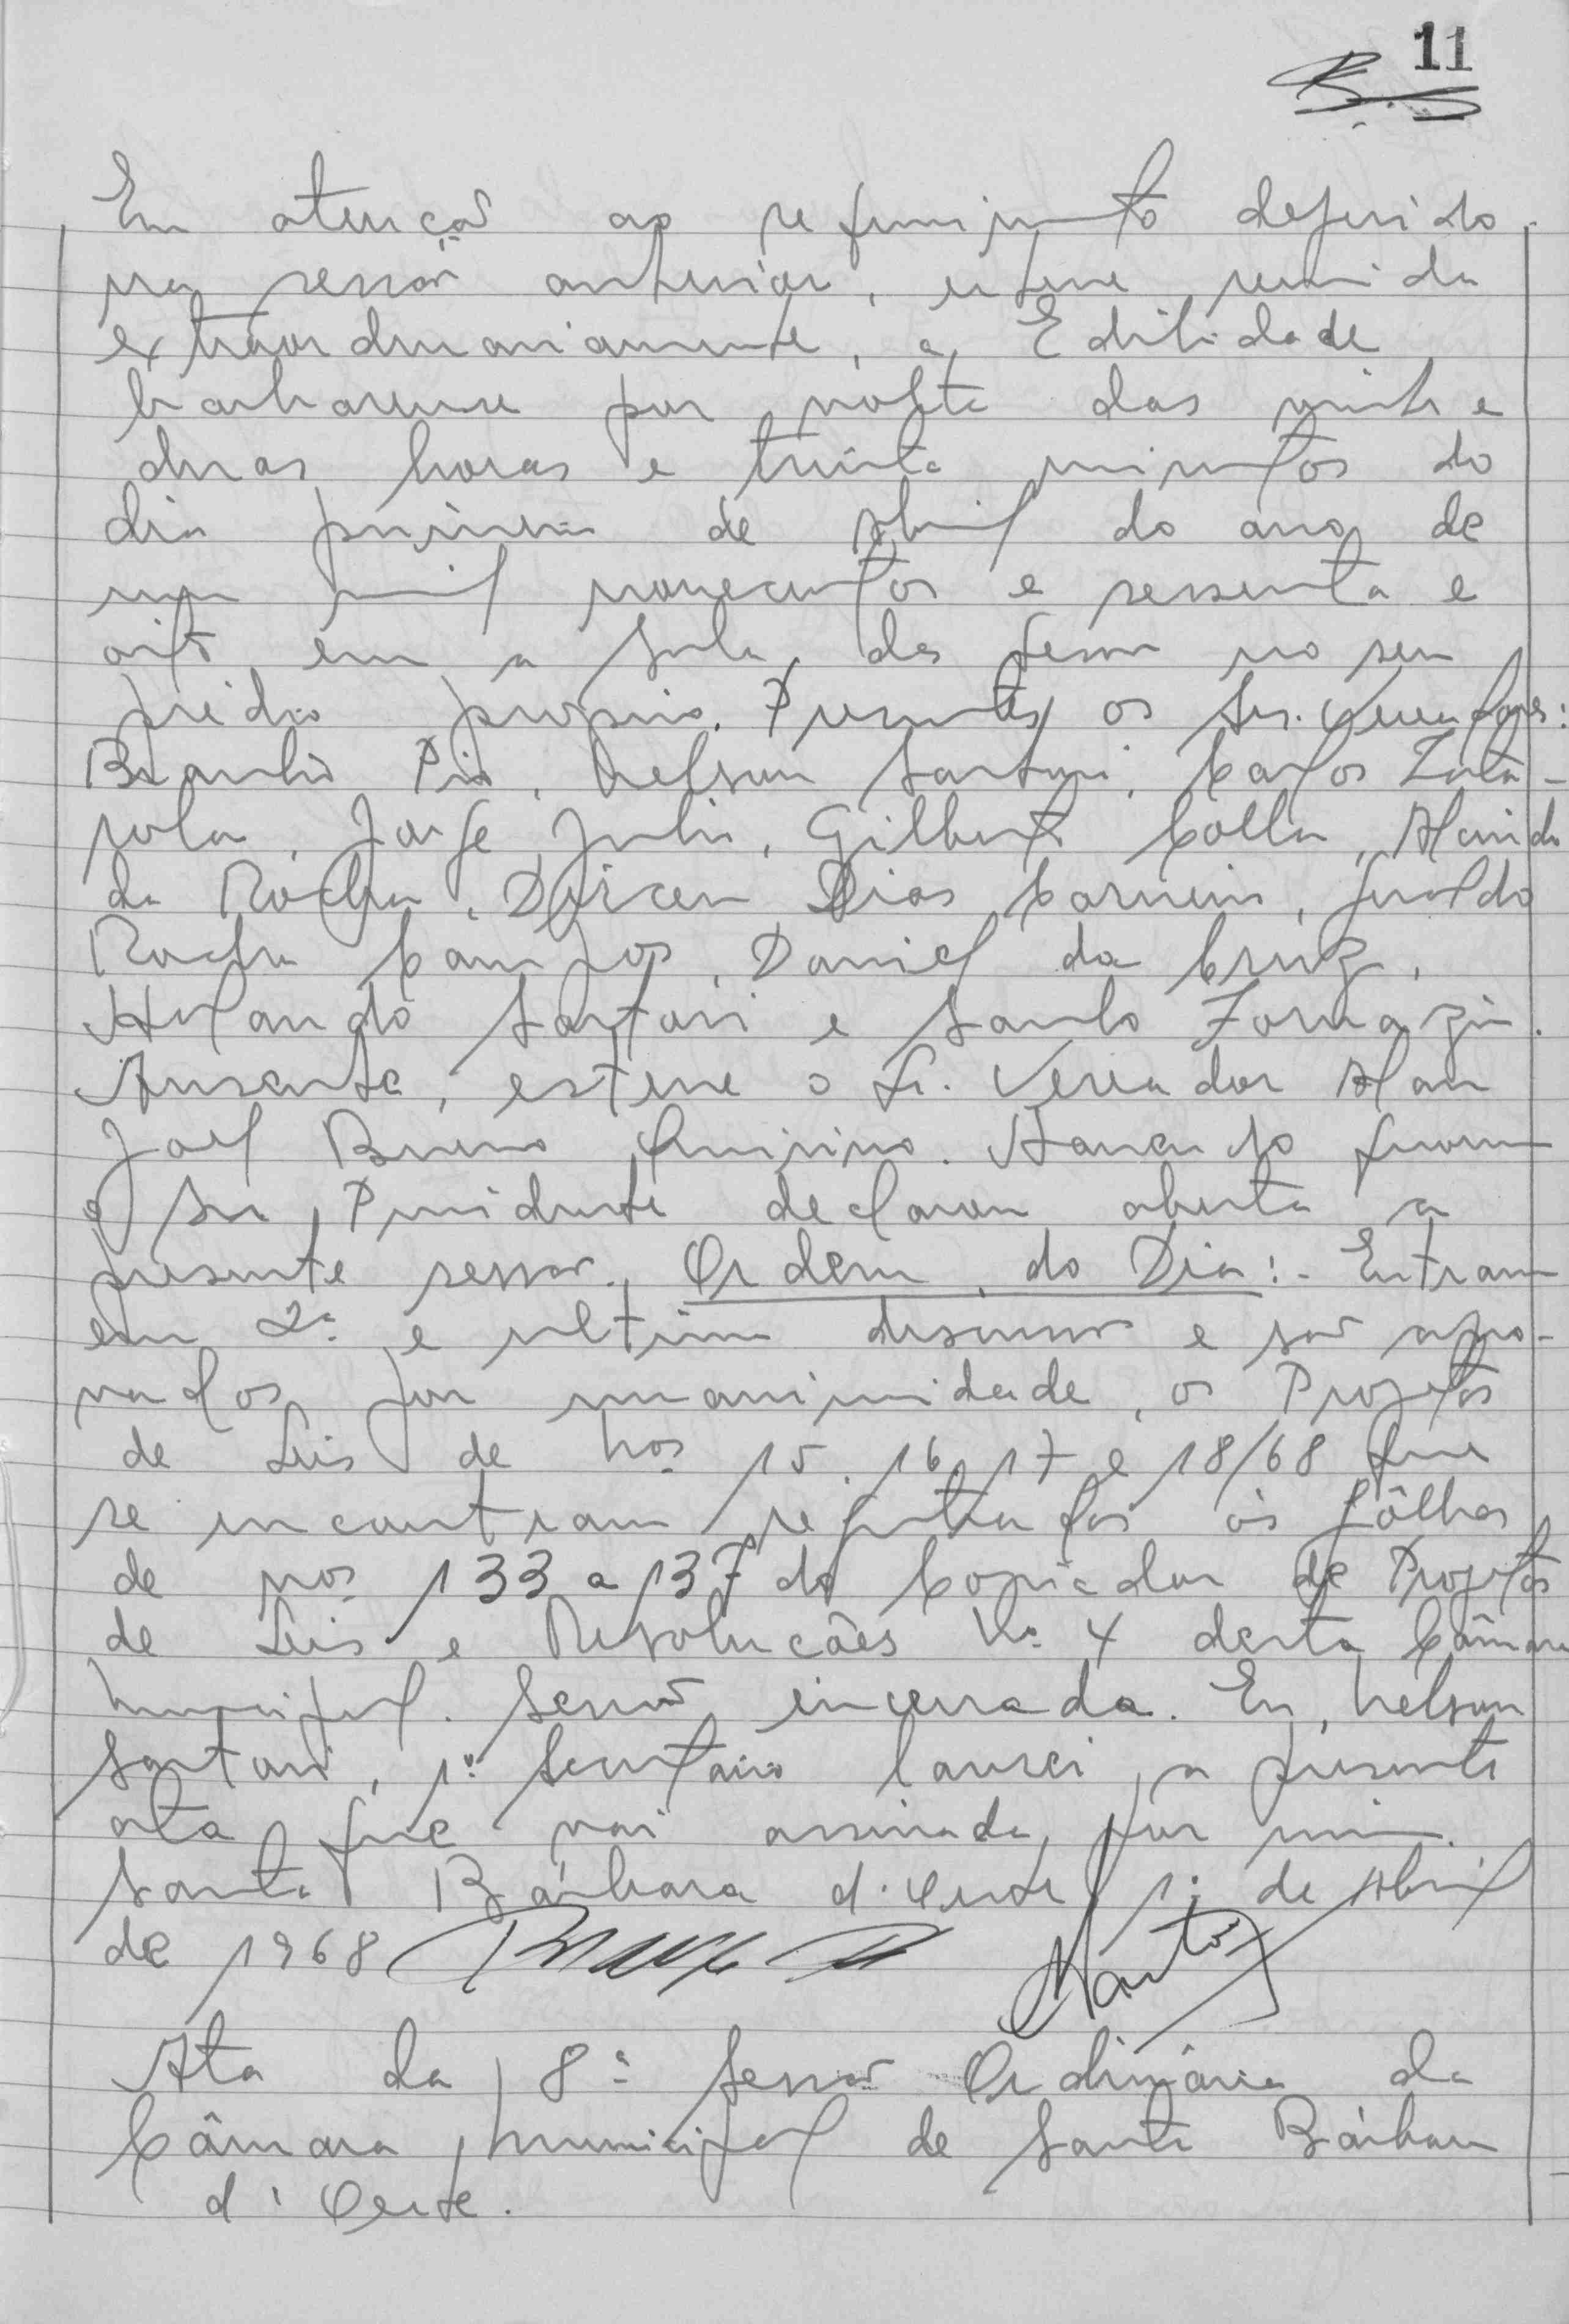 11
Em atenção ao requerimento deferido
na sessão anterior, esteve reunida
extraordinariamente, a Edilidade
barbarense por volta das vinte e
duas horas e trinta minutos do
dia primeiro de Abril do ano de
um mil novecentos e sessenta e
oito, em a Sala das Sessões no seu
prédio próprio. Presentes os Srs. Vereadores:
Braulio Pio, Nelson Sartori, Carlos
Jorge Julio, Gilberto Colla, Alcindo
da Rocha, Dirceu Dias Carneiro, Geraldo
Rocha Campos, Daniel da Cruz,
Holando Sartori e Santo Fornazin.
Ausente, esteve o Sr. Vereador Alan
Joel Bruno Quirino. Havendo quorum
o Snr Presidente declarou aberta a
presente sessão. Ordem do Dia:- Entram
em 2ª e ultima discussão e são apro-
vados por unanimidade, os Projetos
de Leis de Nos 15, 16, 17 e 18/68 que
se encontram registrados às fôlhas
de nos 133 a 137 do Copiador de Projetos
de Leis e Resoluções Nº 4 desta Câmara
Municipal. Sessão encerrada. Eu, Nelson
Sartori, 1º Secretário lancei a presente
ata que vai assinada por mim.
Santa Bárbara d'Oeste 1º de Abril
de 1968
Ata da 8ª Sessão Ordinária da
Câmara Municipal de Santa Bárbara
d'Oeste.